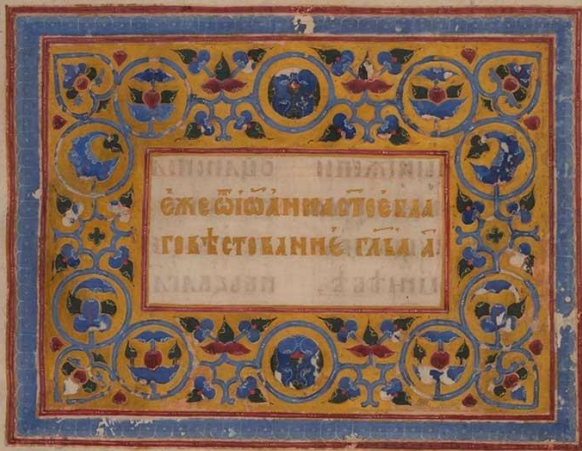 е́же ѿ їѡ́анна ст҃ое бла
говѣствованиѐ глв҃а а҃